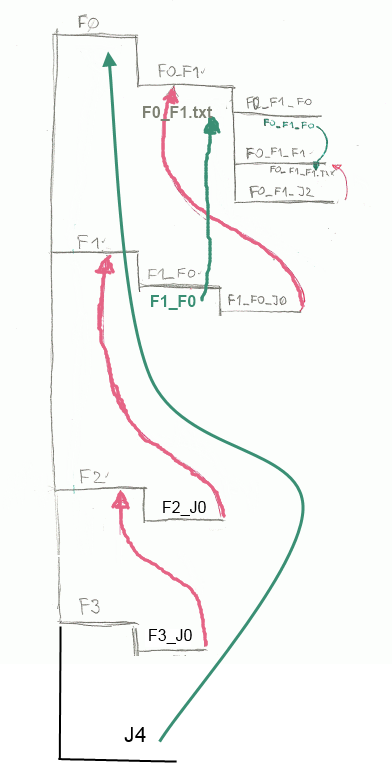 F0
F0_F1
F0_F1.txt
F0_F1_F0
F0_F1_F0
F0_F1_F1
F0_F1_F1.txt
F0_F1_J2
F1
F1_F0
F1_F0
F1_F0_J0
F2
F2_J0
F3
F3_J0
J4